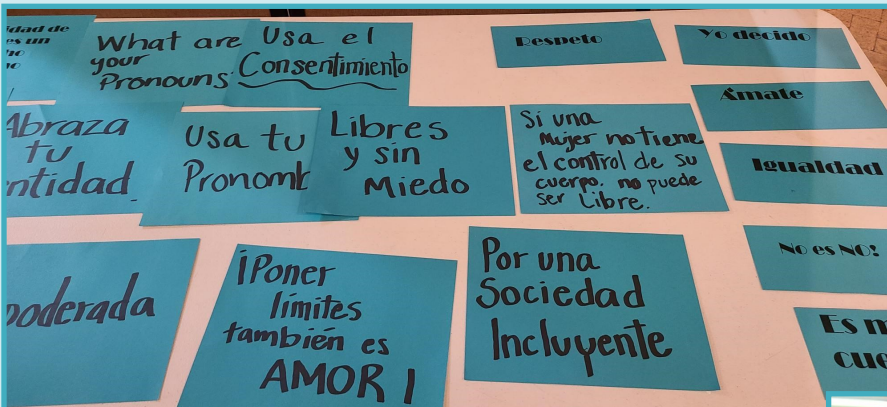 idad de
es un
What are
your
Pronouns
Usa el
Consentimiento
Respeto
Yo decido
Abraza
tu
ntidad
Usa tu
Pronomb
Libres
y sin
Miedo
Si una
Mujer no tiene
el control de su
cuerpo. no puede
ser Libre.
Ámate
Igualdad
No es NO!
poderada
¡Poner
límites
también es
AMOR!
Por una
Sociedad
Incluyente
Es m
cue